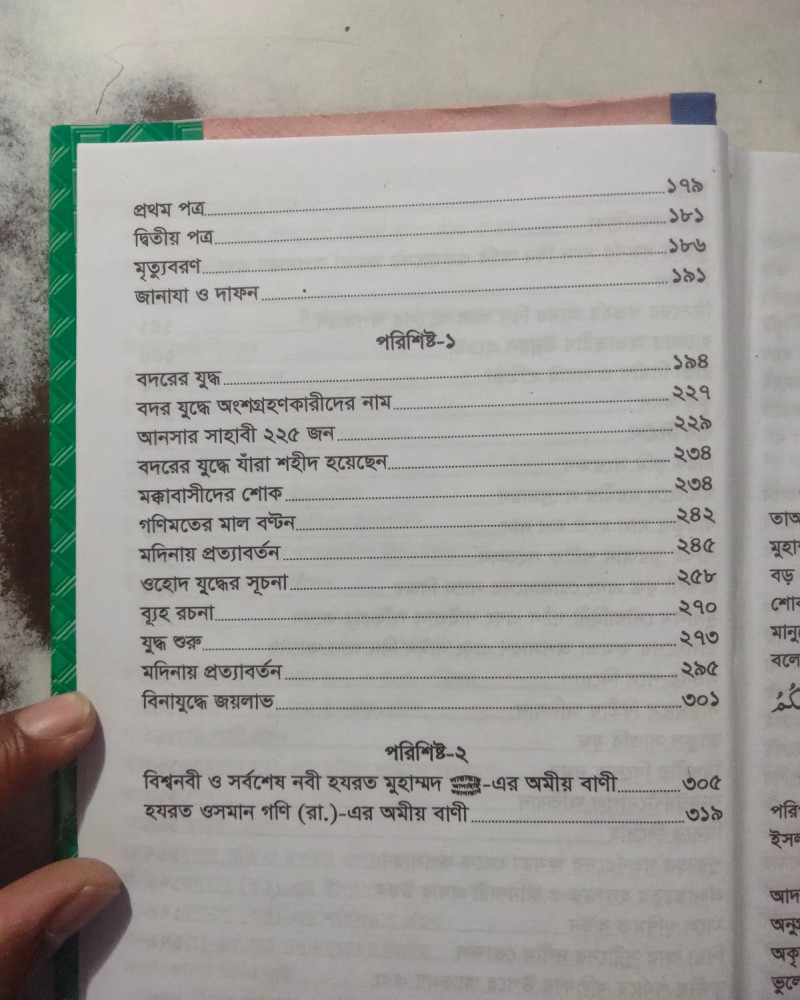 প্রথম পত্র........১৭৯
দ্বিতীয় পত্র........১৮১
মৃত্যুবরণ........১৮৬
জানাযা ও দাফন........১৯১
পরিশিষ্ট-১
বদরের যুদ্ধ........১৯৪
বদর যুদ্ধে অংশগ্রহণকারীদের নাম........২২৭
আনসার সাহাবী ২২৫ জন........২২৯
বদরের যুদ্ধে যাঁরা শহীদ হয়েছেন........২৩৪
মক্কাবাসীদের শোক........২৩৪
গণিমতের মাল বণ্টন........২৪২
মদিনায় প্রত্যাবর্তন........২৪৫
ওহোদ যুদ্ধের সূচনা........২৫৮
ব্যূহ রচনা........২৭০
যুদ্ধ শুরু........২৭৩
মদিনায় প্রত্যাবর্তন........২৯৫
বিনাযুদ্ধে জয়লাভ........৩০১
পরিশিষ্ট-২
বিশ্বনবী ও সর্বশেষ নবী হযরত মুহাম্মদ -এর অমীয় বাণী........৩০৫
হযরত ওসমান গণি (রা.)-এর অমীয় বাণী........৩১৯